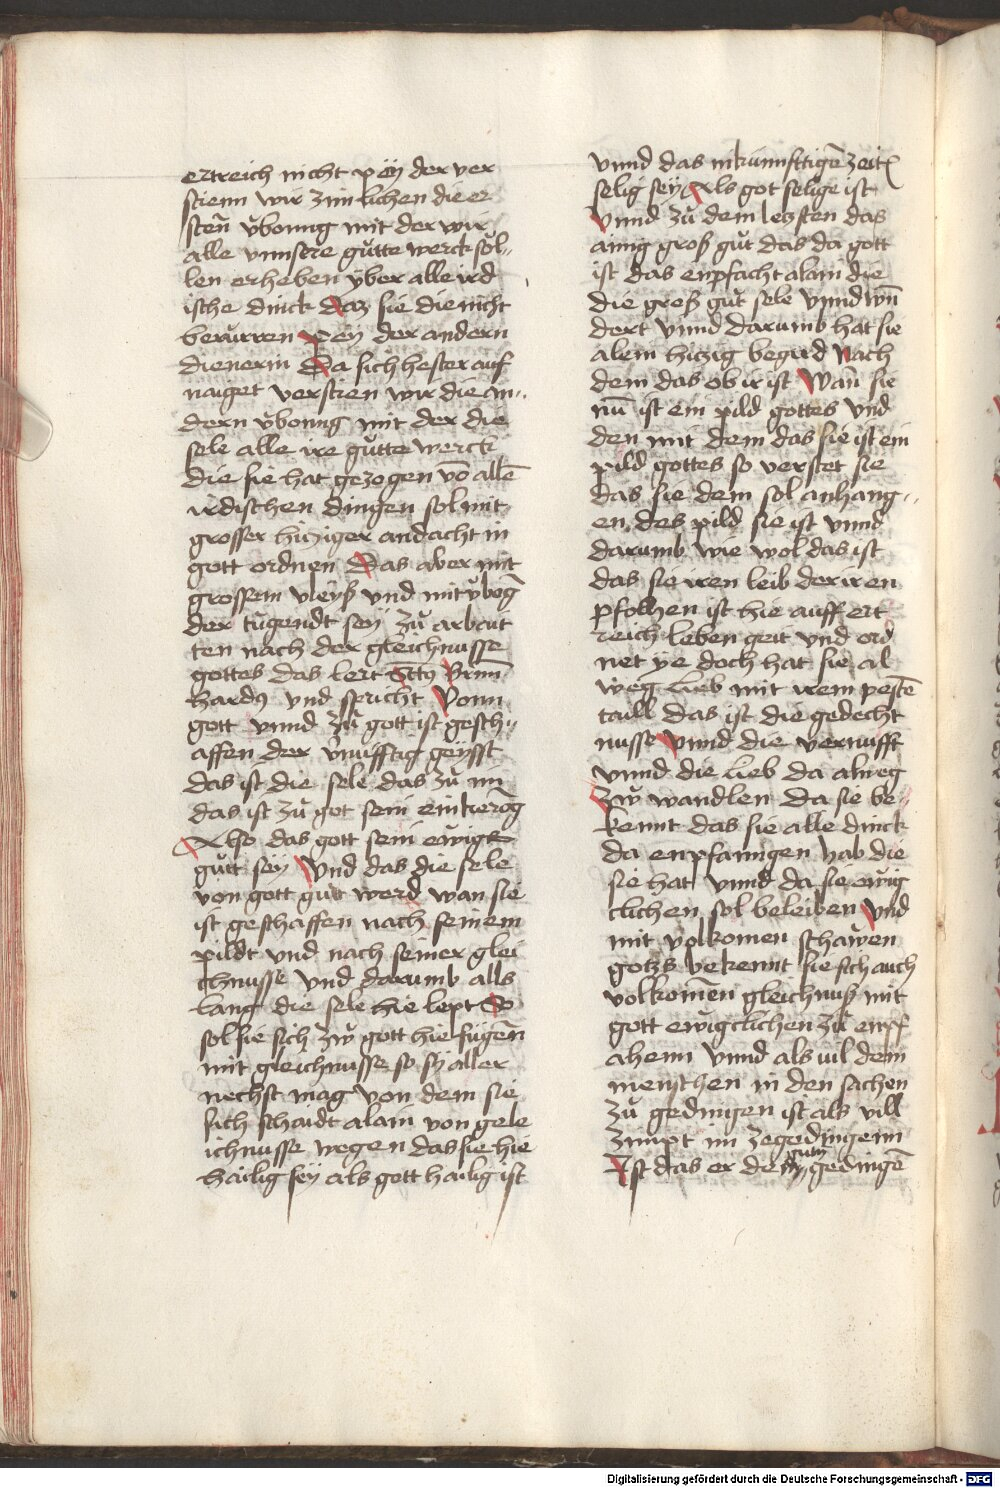 ertreich nicht peÿ der ver
stienn wir zimlichen die er
sten̄ vbonng mit der wir
alle vnnsere gůtte werck sol-
len erheben vber alle ird
ische dinck daz sie die nicht
berurren Peÿ der andern
dienerin Da sich hester auf
naiget verstien wir die an-
dern vbonng mit der die
sele alle ire gůtte werck
die sie hat gezogen vō allē
irdischen dingen sol mit
grosser hitziger andacht in
gott ordnen Das aber mit
grossem vleyß vnd mit vbeḡ
der tugendt seÿ zů arbait
ten nach der gleichnusse
gottes das lert Sctꝰ Bern̄
hardꝰ vnd spricht Vonn
gott vnnd zů gott ist gesch-
affen der v̄nufftig geÿst
das ist die sele das zů im
das ist zů got sein ein kerōg
Also das gott sein ewigs
gůtt seÿ Vnd das die sele
von gott gutt werd wan sie
ist geschaffen nach seinem
pildt vnd nach seiner glei
chnusse vnd darumb alls
lang die sele hie lept So
sol sie sich zw gott hie fügen̄
mit gleichnusse so sÿ aller
nechst mag von dem sie
sich schaidt alain von gele
ichnusse wegen das sie hie
hailig seÿ als gott hailig ist
vnnd das in kunnfttigē zeitē
selig seÿ Als got selige ist
Vnnd zů dem letzsten das
ainig groß gůt das da gott
ist das enpfacht alain die
die groß gůt sele vnnd wn̄
dert vnnd darumb hat sie
alein hiczig begird Nach
dem das ob ir ist Wan̄ sie
nū ist ein pild gottes vnd
den mit dem das sie ist ein
pild gottes so verstet sie
das sie dem sol anhang-
en des pild sie ist vnnd
darumb wie wol das ist
das sie iren leib der ir en
pfolhen ist hie auff ert
reich leben geit vnd ord
net ÿe doch hat sie al
weḡ Lieb mit irem pestē
taill das ist die gedecht
nusse Vnnd die vernufft
vnnd die Lieb da alweg
Zw wandlen da sie be-
kennt das sie alle dinck
da enpfanngen hab die
sie hat vnnd da sie ewig
clichen sol beleiben Vnd
mit volkomen schawen
gotzs bekennt sie sich auch
volkomen̄ gleichnuß mit
gott ewigclichen zů enpf
ahenn Vnnd als uil dem
menschen in den sachen
zů gedingen ist als vill
zimpt im ze gedingenn
Ist das er dem gutn gedingē
Digitalisierung gefördert durch die Deutsche Forschungsgemeinschaft - DFG